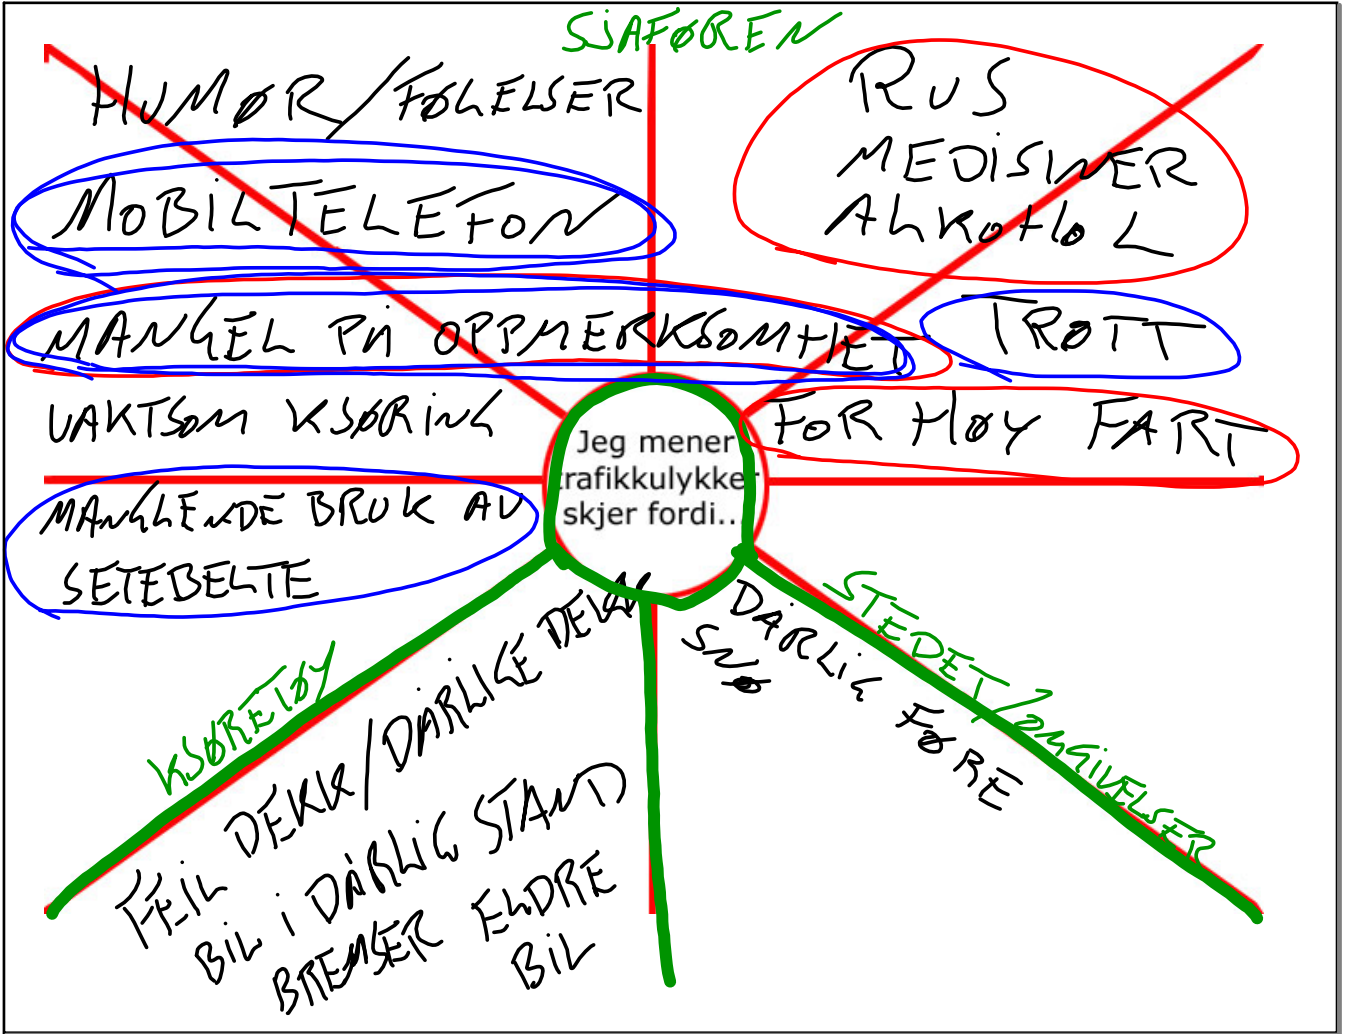 SJAFØREN
HUMØR/FØLELSER
MOBILTELEFON
MANGEL PÅ OPPMERKSOMHET
UAKTSOM KJØRING
MANGLENDE BRUK AV
SETEBELTE
RUS
MEDISINER
ALKOHOL
TRØTT
FOR HØY FART
Jeg mener
trafikkulykker
skjer fordi...
KJØRETØY
FEIL DEKK/DÅRLIGE DEKK
BIL I DÅRLIG STAND
BREMSER ELDRE
BIL
STEDET/OMGIVELSER
DÅRLIG FØRE
SNØ